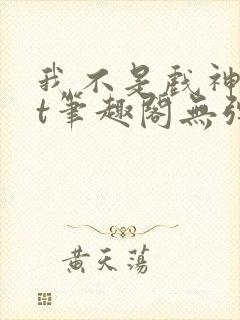 我不是戲神
t筆趣閣無
黃天蕩